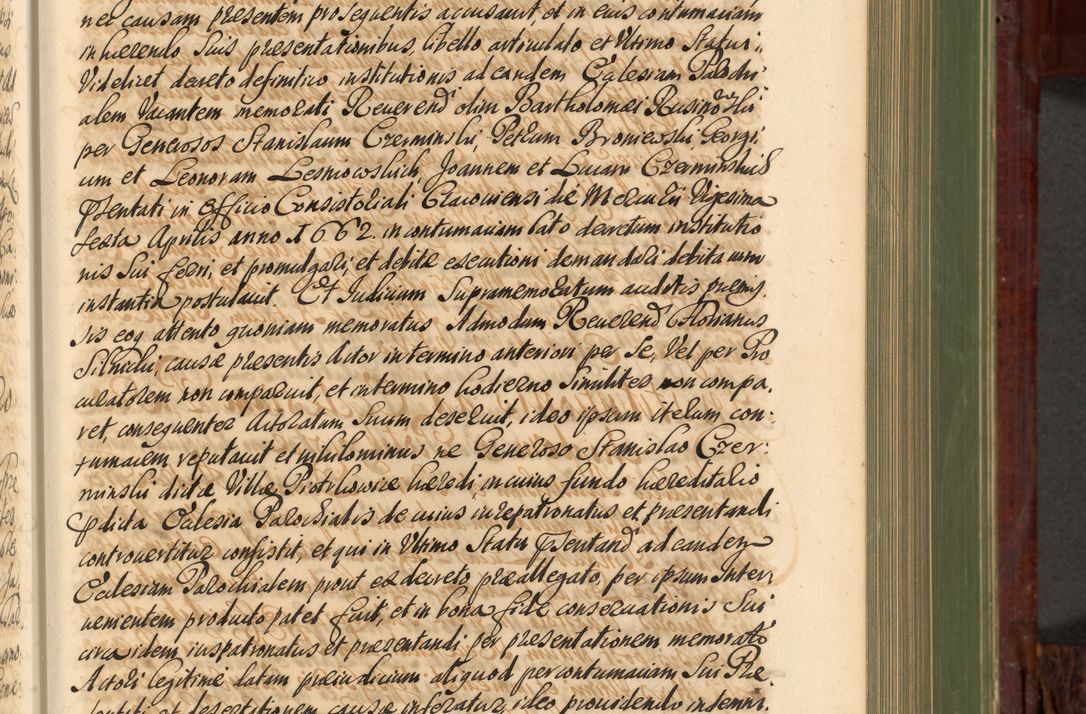 nec causam presentem prosequentis accusauit et in eius contumaciam
inhærendo suis præsentationibus, libello articulato et Vltimo Statui,
Videlicet decreto definitiuo institutionis ad eandem Ecclesiam Parochi
alem Vacantem memorati Reuerend olim Bartholomæi Rusinowski
per Generosos Stanislaum Czerminski, Petrum Broniewski, Georgi
um et Leonoram Lesniowskich, Joannem et Lucam Czerminskich
pſentati in Officio Consistoriali Cracouiensi die Mercurii Vigesima
sexta Aprilis anno 1662. in contumaciam lato decretum institutio
nis sui ferri, et promulgari, et debitæ executioni demandari debita cum
instantia postulauit. Et Judicium Supramemoratum auditis præmis
sis eoq attento quoniam memoratus Admodum Reuerend Florianus
causæ præsentis Actor in termino anteriori per se, Vel per Pro
curatorem non comparuit, et in termino hodierno Similiter non compa,
ret, consequenter Actoratum Suum deseruit, ideo ipsum iterum con
tumacem reputauit et nihilominus ne Generoso Stanislao Czer:
minski dictæ Villæ Piotrkowice hæredi, in cuius fundo hæreditario
pdicta Ecclesia Parochialis de cuius iurepatronatus et præsentandi
controuertitur consistit, et qui in Vltimo Statu pſentand ad eandem
Ecclesiam Parochialem prout ex decreto præallegato, per ipsum Inter,
uenientem producto patet fuit, et in bona fide conseruationis Sui
circa idem iuspatronatus et præzentandi per præsentationem memorato
Actori legitime datam præiudicium aliquod per contumaciam Sui Præ,
sentati et desertationem causæ inferatur, ideo prouidendo indemni,